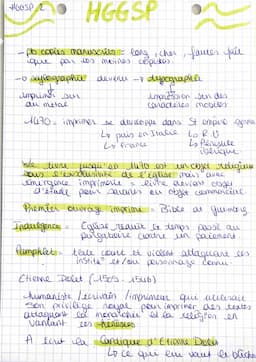 HGGSP 2
HGGSP
- pb copies manuscrites = long, cher, fautes
que par les moines copistes.
-o xylographie devenu → typographie
imprimer sur
du métal
impression sur des
caractères mobiles
1470 = imprimer se développe dans St empire germa
↳ puis en Italie
↳ R.U
↳ France
↳ Péninsule
ibérique
le livre jusqu'en 1470 est un objet religieux
sous l'exclusivité de l'église mais avec
émergence imprimerie = livre devient objet
d'étude pour savants ou objet commercial.
Premier ouvrage imprimé = Bible de Gutenberg
Indulgence = Eglise réduit le temps passé au
purgatoire contre un paiement
Pamphlet = texte court et violent attaquant une
institution et/ou personnage connu
Etienne Dolet (1509 - 1546)
humaniste / écrivain / imprimeur qui
son privilège royal pour imprimer des textes
attaquant la monarchie et la religion en
vantant les
A écrit le Cantique d'Etienne Dolet
↳ ce qui lui vaut le